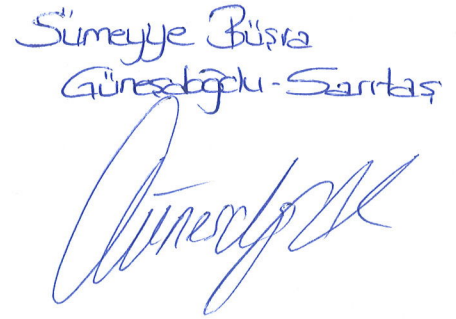 Sümeyye Büşra
Güneşdoğdu-Sarıtaş